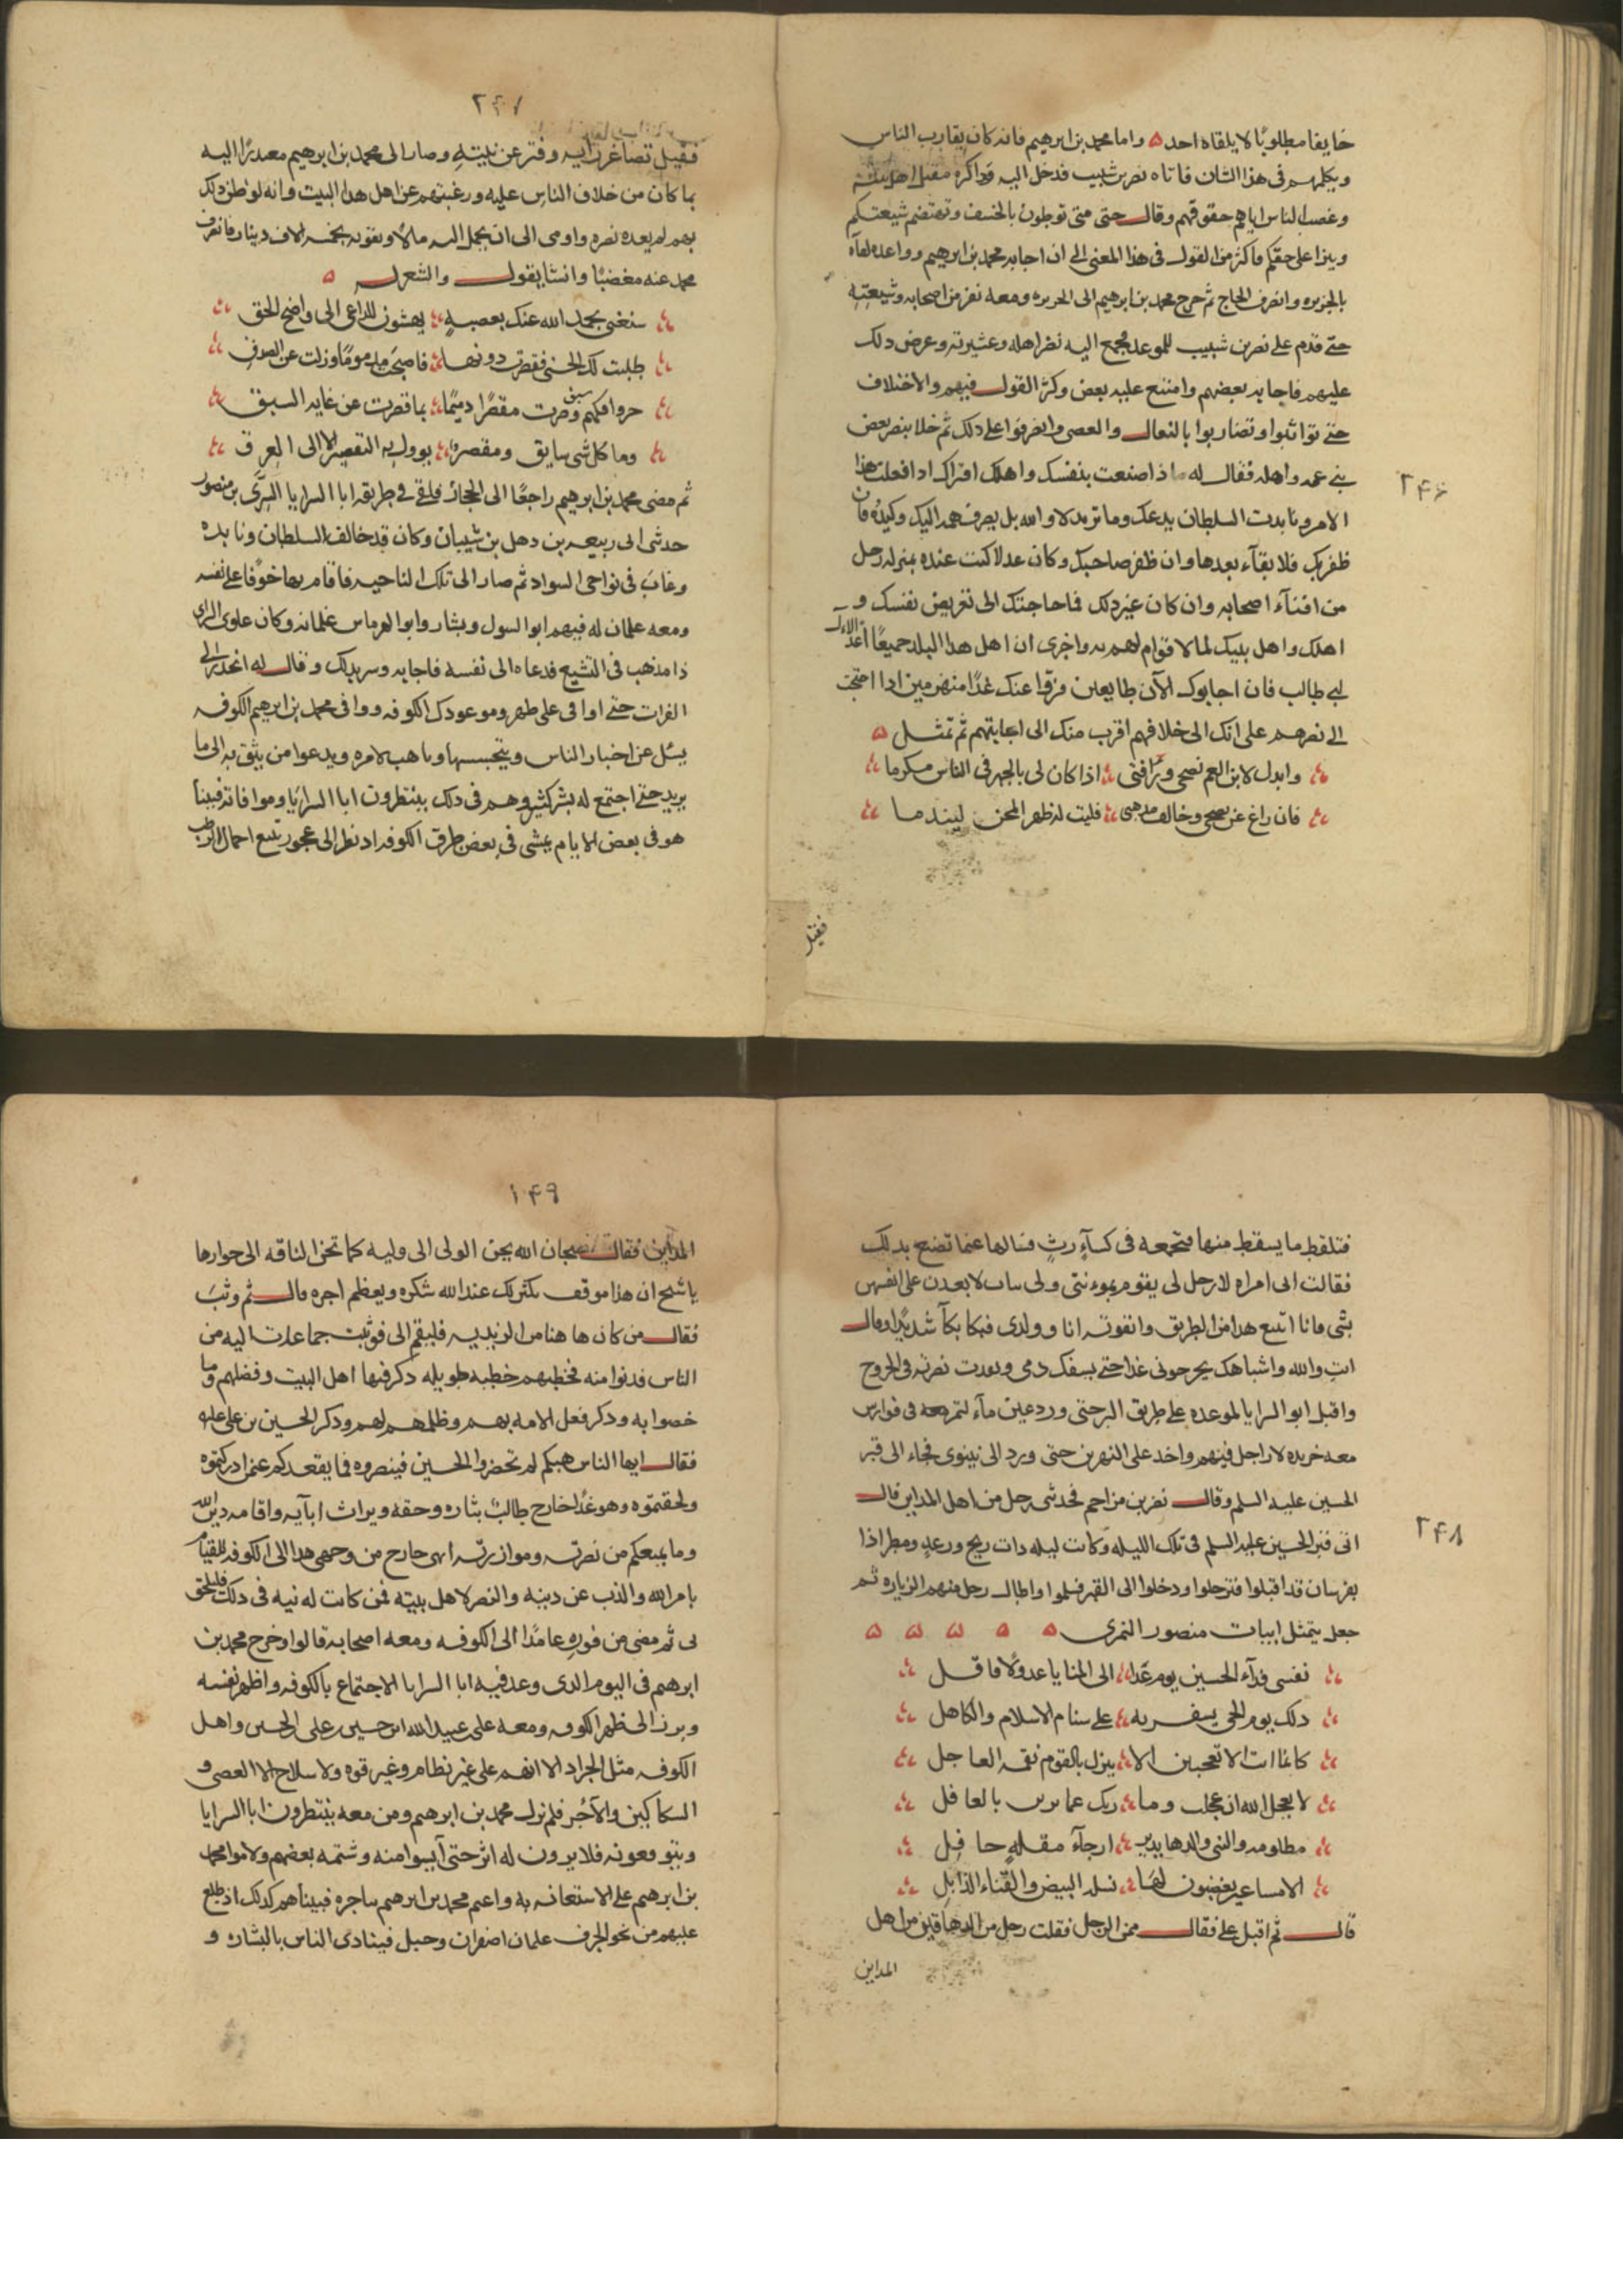 ٢٤٦
خايفا مطلوبًا لا يلقاه احد ۵ واما محمد بن ابرهيم فانه كان يقارب الناس
ويكلمهم فى هذا الشان فاتاه نصر بن شبيب فدخل اليه وذاكره مقتل اهل بيته
وغصب الناس اياهم حقوقهم وقال حتى متى توطون بالخسف وتهتضم شيعتكم
وينزا على حقكم فاكثر من القول فى هذا المعنى الى ان اجابه محمد بن ابرهيم وواعده لقاه
بالجزيره وانصرف الحاج ثم خرج محمد بن ابرهيم الى الجزيره ومعه نفر من اصحابه وشيعته
حتى قدم على نصر بن شبيب للموعد فجمع اليه نصر اهله وعشيرته وعرض دلك
عليهم فاجابه بعضهم وامتنع عليه بعض وكثر القول فيهم والاختلاف
حتى تواثبوا وتضاربوا بالنعال والعصى وانصرفوا على دلك ثم خلا بنصر بعض
بنى عمه واهله فقال له ماذا صنعت بنفسك واهلك افتراك ادا فعلت هذا
الامر ونابدت السلطان يدعك وما تريد لا والله بل يصرف همه اليك وكيده فان
ظفر بك فلا بقآء بعدها وان ظفر صاحبك وكان عدلا كنت عنده بمنزله رجل
من افنآء اصحابه وان كان غير دلك فما حاجتك الى تعريض نفسك و
اهلك واهل بيتك لما لا قوام لهم به واخرى ان اهل هدا البلد جميعًا اعدآء لال
ابى طالب فان اجابوك الآن طايعين فرقوا عنك غدًا منهزمين ادا احتجت
الى نصرهم على انك الى خلافهم اقرب منك الى اجابتهم ثم تمثل ۵
وابدل لابن العم نصحى ورافتى اذا كان لى بالجهر فى الناس مكرما
فان راغ عن نصحى وخالف مدهبى قلبت له ظهر المجن ليندما
فقيل
٢٤٧
فقيل تصاغر رايه وفتر عن نيته وصار الى محمد بن ابرهيم معدرًا اليه
بما كان من خلاف الناس عليه ورغبتهم عن اهل هدا البيت وانه لو ظن دلك
بهم لم يعده نصره واومى الى ان يحمل اليه مالًا ويقويه بخمسه الاف دينار فانصرف
محمد عنه مغضبًا وانشا يقول والشعر له ۵
سنغنى بحمد الله عنك بعصبةٍ يهشون للداعى الى واضح الحق
طلبت لك الحسنى فقصرت دونها فاصبحت مدمومًا وزلت عن الصدق
جروا فلكهم سبق وصرت مقصرًا دميمًا بما قصرت عن غايه السبق
وما كل شى سابق ومقصر يوول به التقصير الا الى العرق
ثم مضى محمد بن ابرهيم راجعًا الى الحجاز فلقى فى طريقه ابا السرايا السرى بن منصور
حدثى الى ربيعه بن دهل بن شيبان وكان قد خالف السلطان ونابده
وعاث فى نواحى السواد ثم صار الى تلك الناحيه فاقام بها خوفًا على نفسه
ومعه غلمان له فيهم ابو السول وبشار وابو الهرماس غلمانه وكان علوى الراى
ذا مذهب فى التشيع فدعاه الى نفسه فاجابه وسر بدلك وقال له انحدر الى
الفرات حتى اوافى على ظهر وموعودك الكوفه ووافى محمد بن ابرهيم الكوفه
يسئل عن اخبار الناس ويتجسسها وياهب لامره ويدعوا من يثق به الى ما
يريد حتى اجتمع له بشر كثير وهم فى دلك ينتظرون ابا السرايا وموافاته فبينا
هو فى بعض الايام يمشى فى بعض طرق الكوفه اد نظر الى عجوز تتبع احمال الرطب
٢٤٨
فتلقط ما يسقط منها فتجمعه فى كسآءٍ رثٍ فسالها عما تصنع بدلك
فقالت انى امراه لا رجل لى يقوم بموءنتى ولى بنات لا يعدن على انفسهن
بشى فانا اتتبع هدا من الطريق واتقوته انا وولدى فبكا بكآ شديدًا وقال
انتِ والله واشباهك يخرجونى غدا حتى يسفك دمى ونفدت نصرته فى الخروج
واقبل ابو السرايا لموعده على طريق البر حتى ورد عين مآء لتمر معه فى فوارس
معه جريده لا راجل فيهم واخد على النهرين حتى ورد الى نينوى فجاء الى قبر
الحسين عليه السلم وقال نصر بن مزاحم فحدثنى رجل من اهل المداين قال
انى قبر الحسين عليه السلم فى تلك الليله وكانت ليله دات ريح ورعد ومطر اذا
بفرسان قد اقبلوا فترجلوا ودخلوا الى القبر فسلموا واطال رجل منهم الزياره ثم
جعل يتمثل ابيات منصور النمرى ۵ ۵ ۵ ۵ ۵
نفسى فدآء الحسين يوم غدا الى المنايا عدوًّا لا قافل
دلك يوم انحى بشفرته على سنام الاسلام والكاهل
كانما انت لا تعجبين الا ينزل بالقوم نقمه العاجل
لا يعجل الله ان عجلت وما ربك عما ترين بالغافل
مظلومه والنبى والدها يدير ارجآء مقلهٍ حافل
الا مساعير يغضبون لها بسله البيض والقناء الذابل
قال ثم اقبل على فقال ممن الرجل فقلت رجل من الدهاقين من اهل
المداين
١٤٩
المداين فقال سبحان الله يحن الولى الى وليه كما تحن الناقه الى حوارها
يا شيخ ان هذا موقف يكثر لك عند الله شكره ويعظم اجره قال ثم وثب
فقال من كان هاهنا من الزيديه فليقم الى فوثبت جماعات اليه من
الناس فدنوا منه فخطبهم خطبه طويله دكر فيها اهل البيت وفضلهم وما
خصوا به ودكر فعل الامه بهم وظلمهم لهم ودكر الحسين بن على عليه
فقال ايها الناس هبكم لم تحضروا الحسين فينصروه فما يقعدكم عمن ادركتموه
ولحقتموه وهو غدًا خارج طالب بثاره وحقه ويراث ابآيه واقامه دين الله
وما يمنعكم من نصرته وموازرته انى خارج من وجهى هدا الى الكوفه للقيام
بامر الله والذب عن دينه والنصر لاهل بيته فمن كانت له نيه فى دلك فليلحق
بى ثم مضى من فوره عامدًا الى الكوفه ومعه اصحابه قالوا وخرج محمد بن
ابرهيم فى اليوم الدى وعد فيه ابا السرايا الاجتماع بالكوفه واظهر نفسه
وبرز الى ظهر الكوفه ومعه على عبيد الله ابن حسين على الحسن واهل
الكوفه مثل الجراد الا انهم على غير نظام وغير قوه ولا سلاح الا العصى و
السكاكين والآجر فلم يزل محمد بن ابرهيم ومن معه ينتظرون ابا السرايا
ويتوقعونه فلا يرون له اثر حتى آيسوا منه وشتمه بعضهم ولاموا محمد
بن ابرهيم على الاستعانه به واغتم محمد بن ابرهيم بتاخره فبيناهم كدلك اد طلع
عليهم من نحو الجرف علمان اصفران وخيل فينادى الناس بالبشاره و